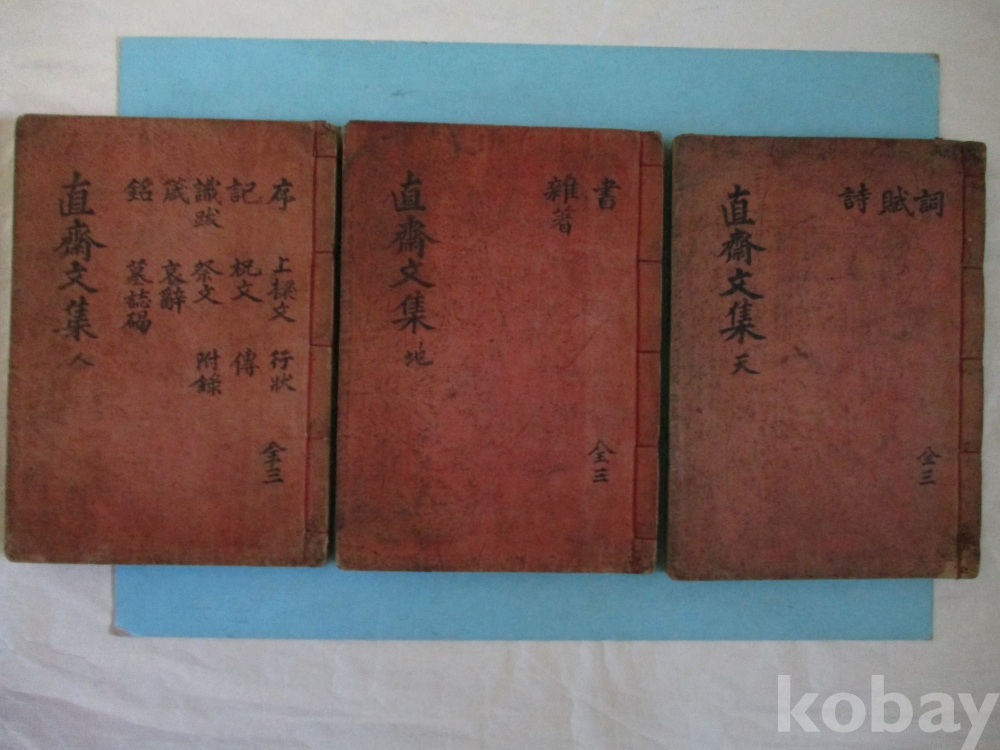 詞
賦
詩
全三
直齋文集 天
書
雜著
全三
直齋文集 地
序 上樑文 行狀
記 祝文 傳
識跋 祭文 附錄
箴 哀辭
銘 墓誌碣
全三
直齋文集 人
kobay